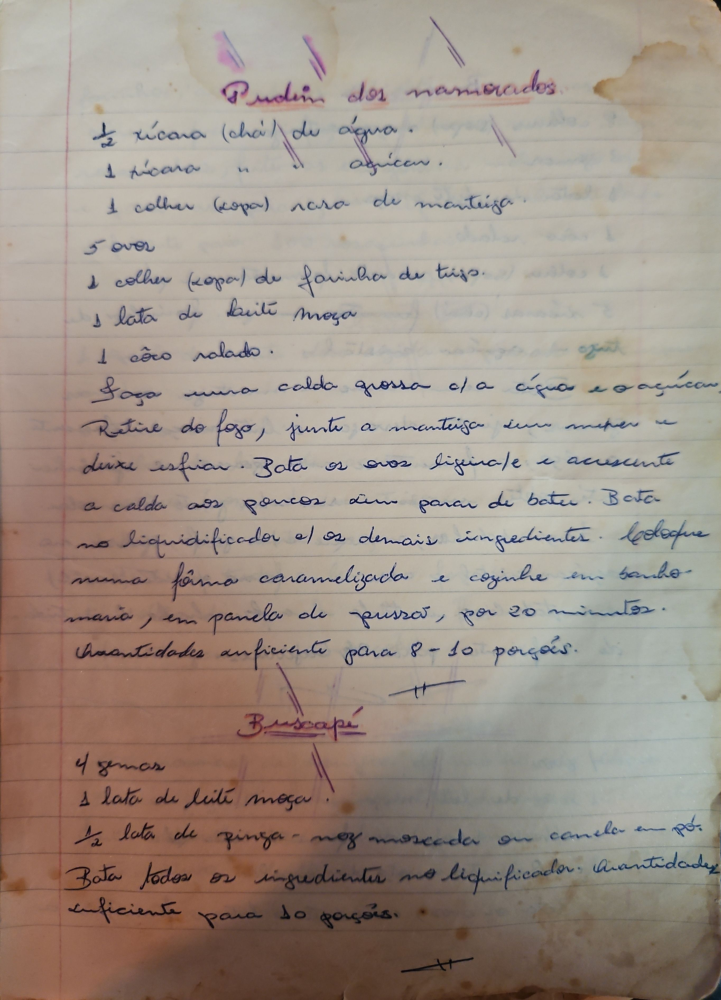 Pudim dos namorados.
1/2 xícara (chá) de água.
1 xícara " " açúcar.
1 colher (sopa) rasa de manteiga.
5 ovos
1 colher (sopa) de farinha de trigo.
1 lata de leite moça
1 côco ralado.
Faça uma calda grossa c/ a água e o açúcar
Retire do fogo, junte a manteiga sem mexer e
deixe esfriar. Bata os ovos ligeira/e e acrescente
a calda aos poucos sem parar de bater. Bata
no liquidificador c/ os demais ingredientes. Coloque
numa fôrma caramelizada e cozinhe em banho
maria, em panela de pressão, por 20 minutos.
Quantidades suficiente para 8-10 porções.
Buscapé
4 gemas
1 lata de leite moça.
1/2 lata de pinga - noz moscada ou canela em pó.
Bata todos os ingredientes no liquificador. Quantidades
suficiente para 10 porções.